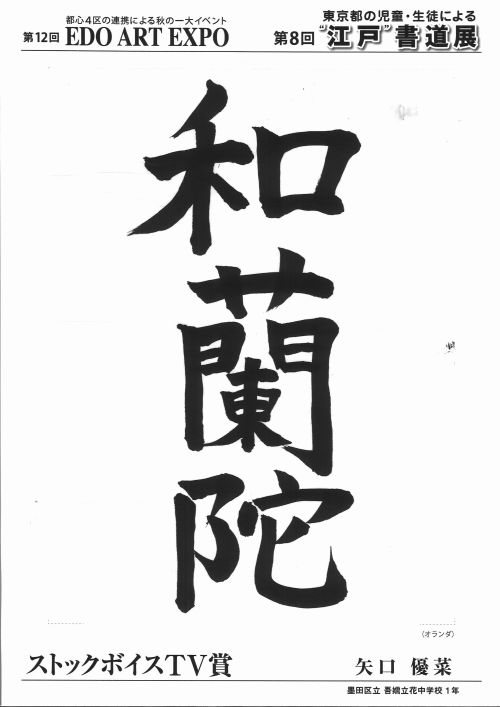 都心4区の連携による秋の一大イベント
第12回 EDO ART EXPO
東京都の児童・生徒による
第8回 “江戸”書道展
和
蘭
陀
(オランダ)
ストックボイスTV賞
矢口 優菜
墨田区立 吾嬬立花中学校 1年